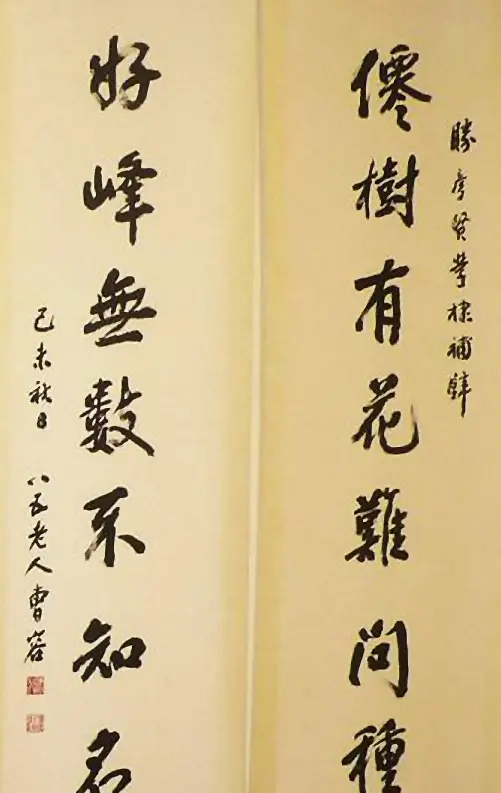 勝彥賢學棣補
僊樹有花難問種
好峰無數不知名
己未秋日 八五老人曹容